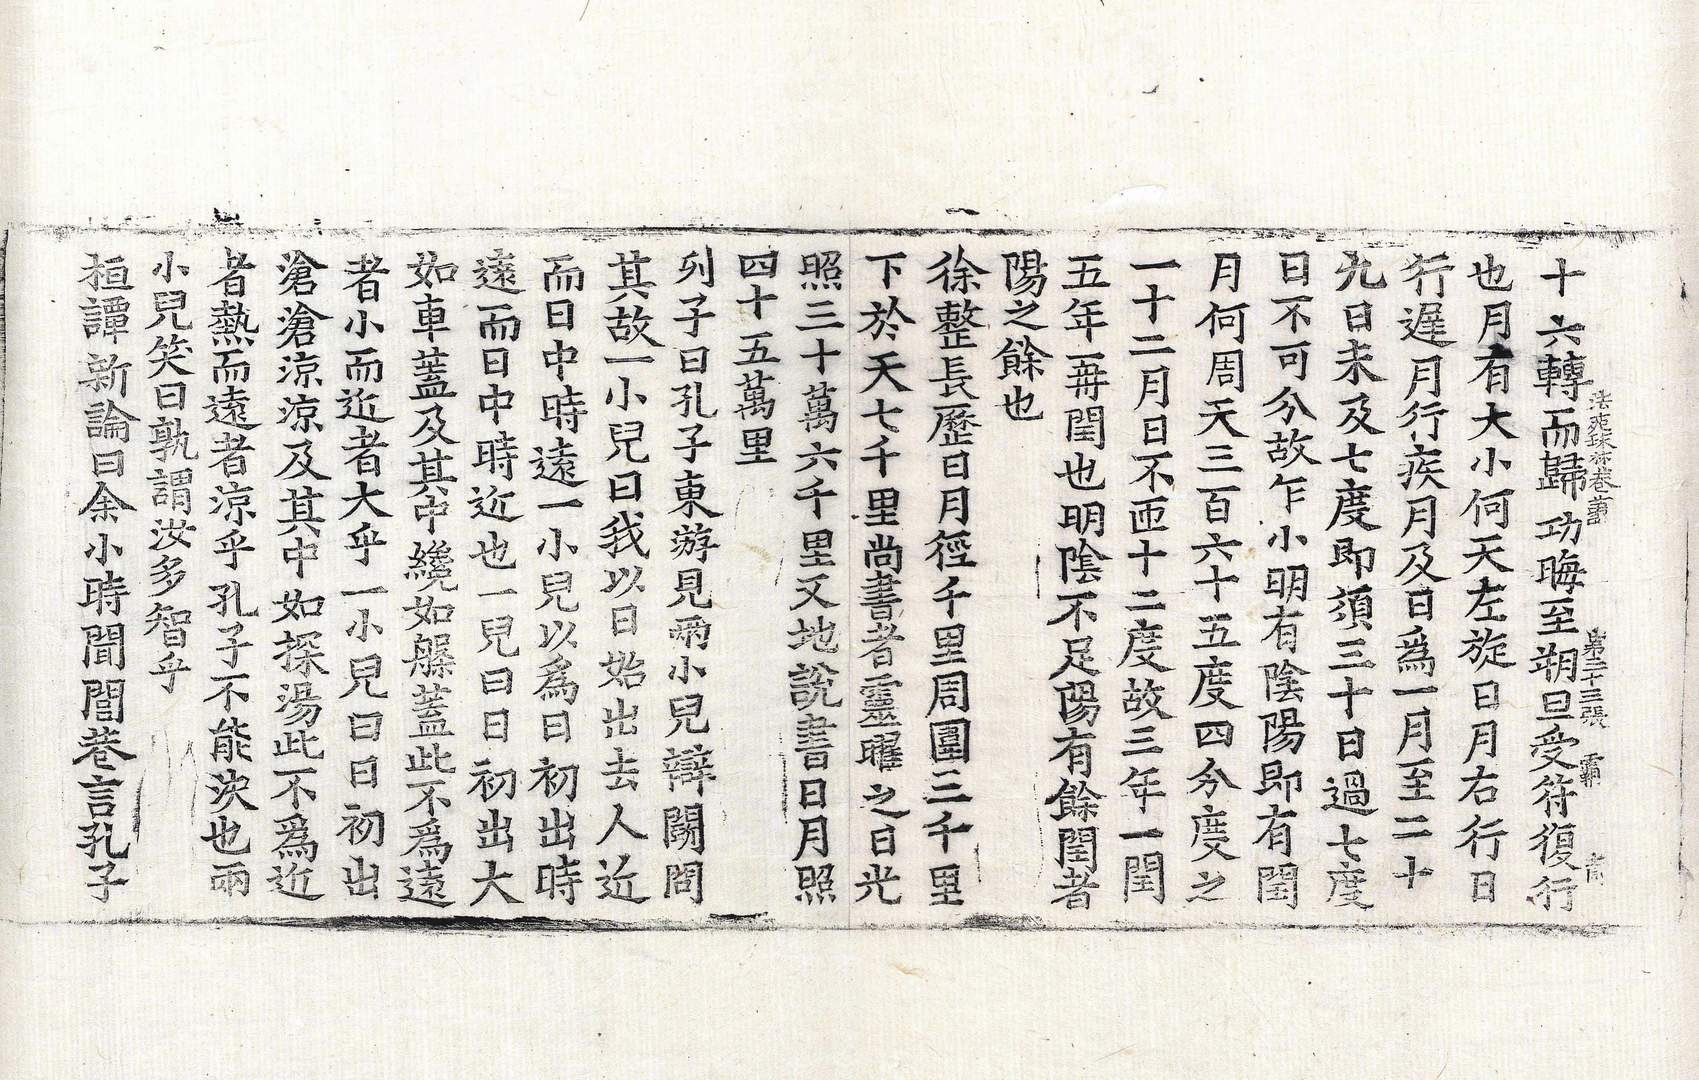 法苑珠林卷第四 第二十三張 霸
十六轉而歸功晦至朔旦受符復行
也月有大小何天左旋日月右行日
行遲月行疾月及日爲一月至二十
九日未及七度即須三十日過七度
日不可分故乍小明有陰陽即有閏
月何周天三百六十五度四分度之
一十二月日不匝十二度故三年一閏
五年再閏也明陰不足陽有餘閏者
陽之餘也
徐整長曆日月徑千里周圍三千里
下於天七千里尚書考靈曜之日光
照三十萬六千里又地說書日月照
四十五萬里
列子曰孔子東游見兩小兒辯鬪問
其故一小兒曰我以日始出去人近
而日中時遠一小兒以爲日初出時
遠而日中時近也一兒曰日初出大
如車蓋及其中纔如槃蓋此不爲遠
者小而近者大乎一小兒曰日初出
滄滄涼涼及其中如探湯此不爲近
者熱而遠者涼乎孔子不能決也兩
小兒笑曰孰謂汝多智乎
桓譚新論曰余小時聞閭巷言孔子